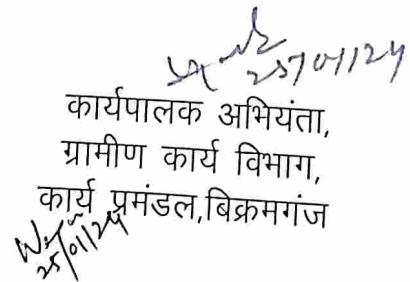 25/01/24
कार्यपालक अभियंता,
ग्रामीण कार्य विभाग,
कार्य प्रमंडल,बिक्रमगंज
25/01/24